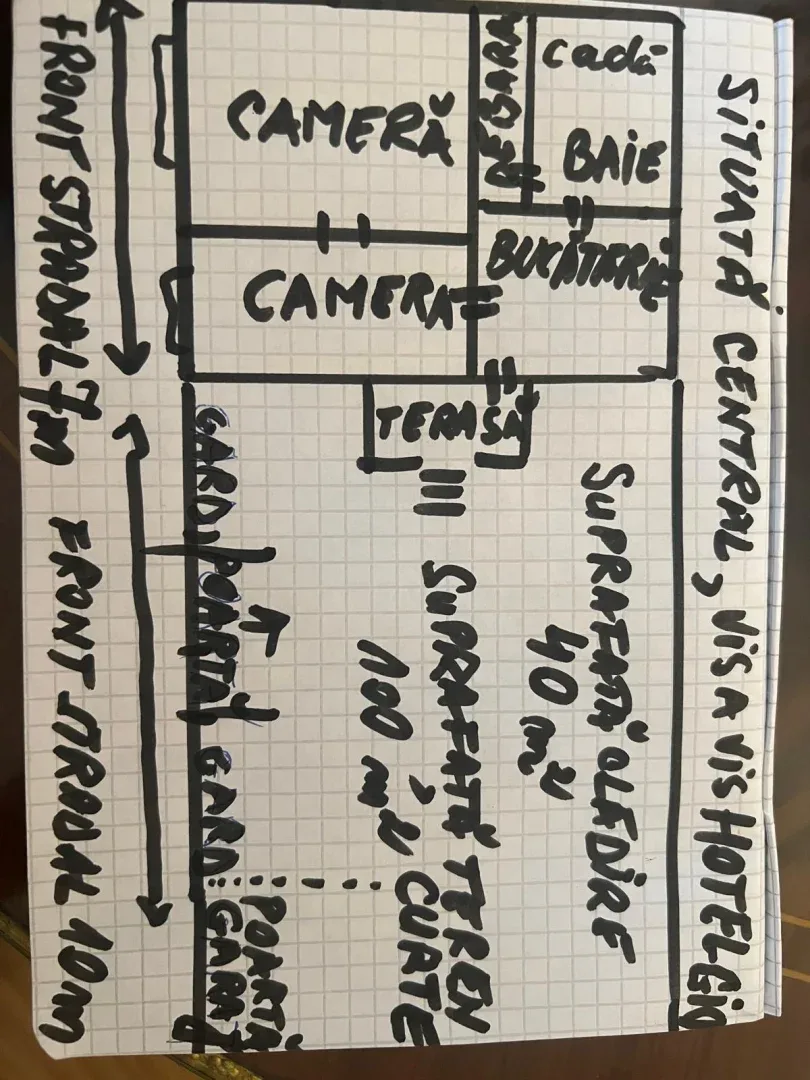 SITUATĂ CENTRAL, VIS A VIS HOTEL
cadă
BAIE
DEBARA
CAMERĂ
BUCĂTĂRIE
CAMERA
TERASĂ
SUPRAFAȚĂ CLĂDIRE
40 m²
SUPRAFAȚĂ TEREN
100 m² CURTE
GARD POARTĂ GARD
POARTĂ
GARAJ
FRONT STRADAL 7m
FRONT STRADAL 10m